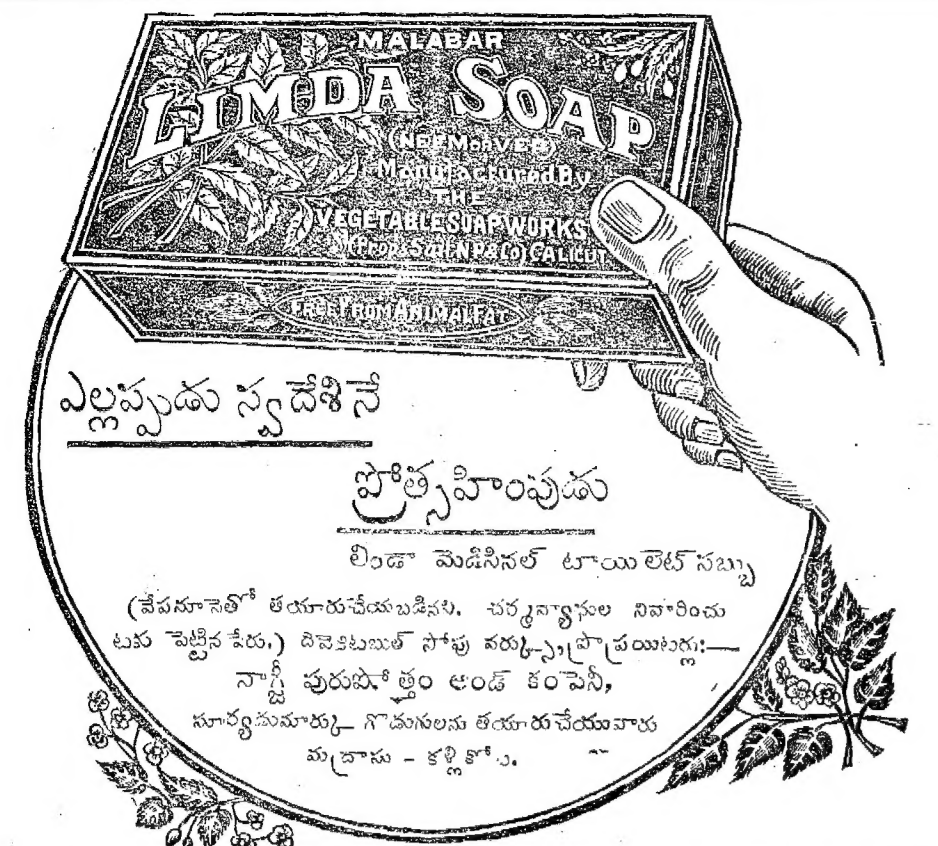 MALABAR
LIMDA SOAP
(NEEM OR VEP)
Manufactured By
THE
VEGETABLE SOAP WORKS
CALICUT
FREE FROM ANIMAL FAT
ఎల్లప్పుడు స్వదేశినే
ప్రోత్సహింపుడు
లిండా మెడిసినల్ టాయిలెట్ సబ్బు
(వేపనూనెతో తయారుచేయబడినది. చర్మవ్యాధుల నివారించు
టకు పెట్టిన పేరు.) సోపు వర్క్సు, ప్రొప్రయిటర్లు:—
నాగ్జీ పురుషోత్తం అండ్ కంపెనీ,
సూర్యుడుమార్కు గొడుగులను తయారుచేయువారు
మద్రాసు -